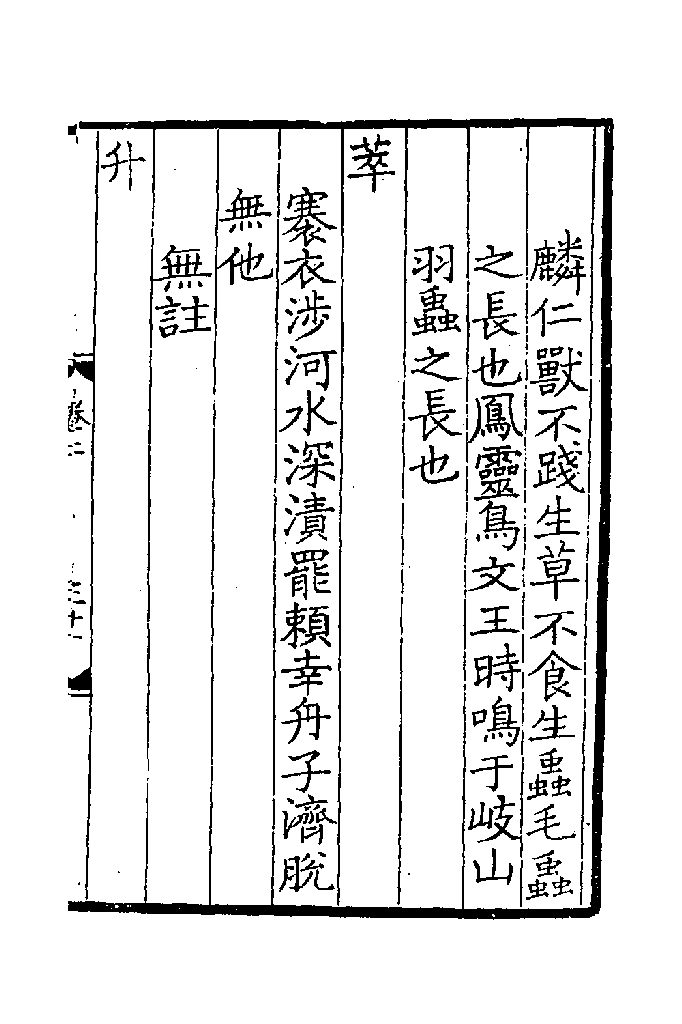 麟仁獸不踐生草不食生蟲毛蟲
之長也鳳靈鳥文王時鳴于岐山
羽蟲之長也
萃
褰衣涉河水深漬罷頼幸舟子濟脫
無他
無註
升